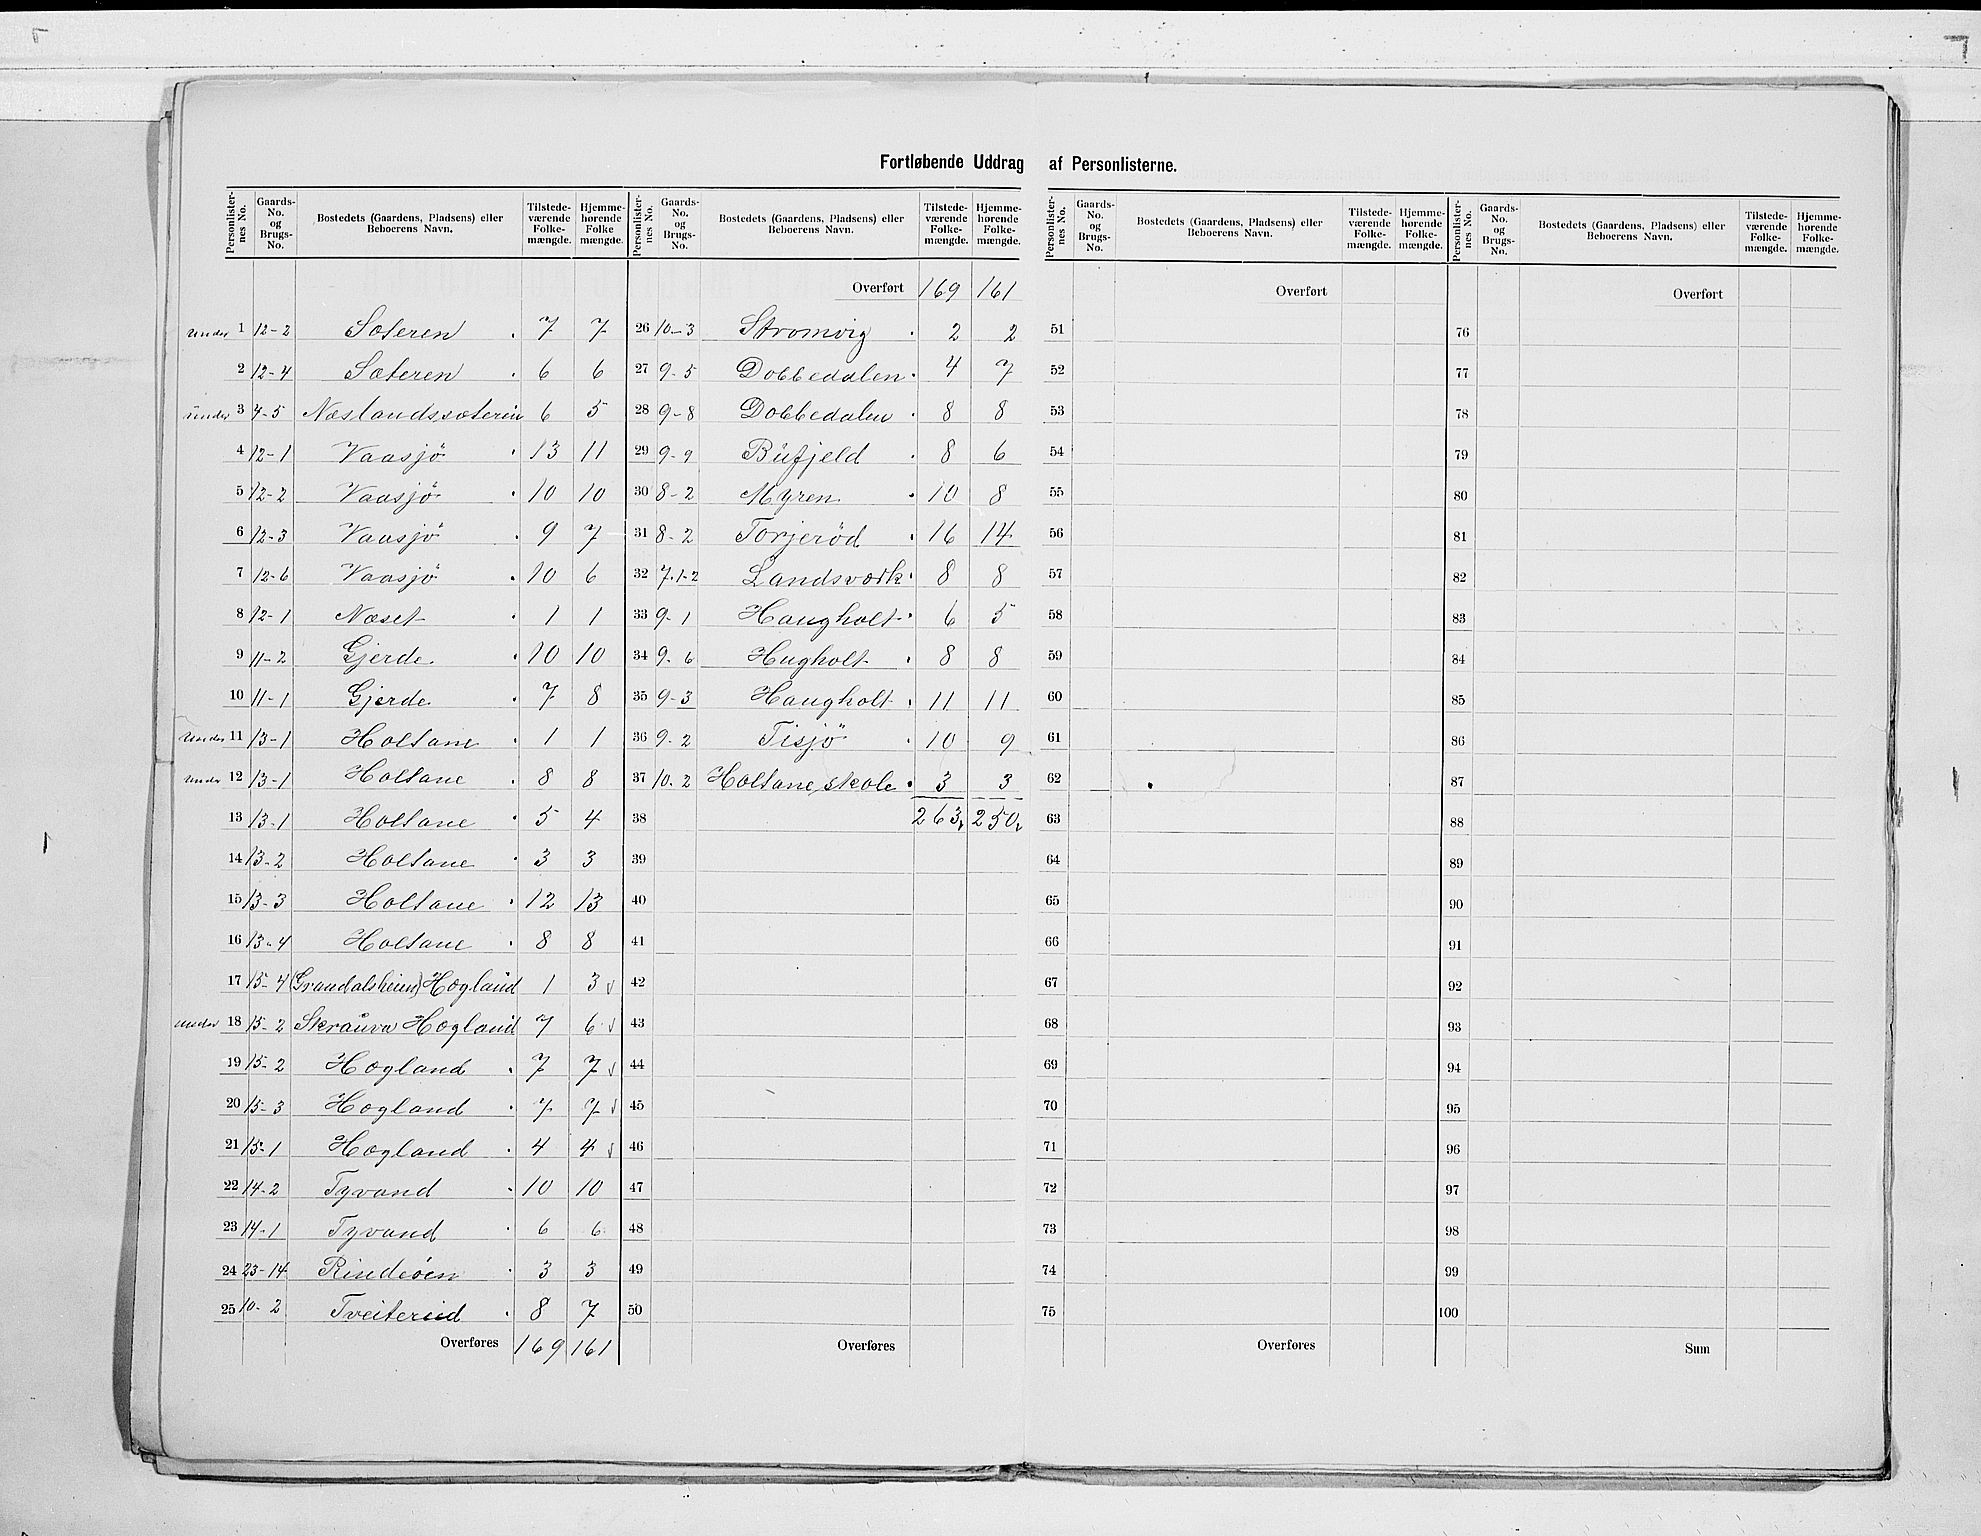 Fortløbende Uddrag af Personlisterne.
Personlister-nes No. | Gaards-No. og Brugs-No. | Bostedets (Gaardens, Pladsens) eller Beboerens Navn. | Tilstede-værende Folke-mængde. | Hjemme-hørende Folke mængde.
under 1 12-2 Sæteren 7 7
2 12-4 Sæteren 6 6
under 3 4-5 Næslandssæterin 6 5
4 12-1 Vaasjö 13 11
5 12-2 Vaasjö 10 10
6 12-3 Vaasjö 9 7
7 12-6 Vaasjö 10 6
8 12-1 Næset 1 1
9 11-2 Gjerde 10 10
10 11-1 Gjerde 7 8
under 11 13-1 Holtane 1 1
under 12 13-1 Holtane 8 8
13 13-1 Holtane 5 4
14 13-2 Holtane 3 3
15 13-3 Holtane 12 13
16 13-4 Holtane 8 8
17 15-4 (Grandalsheim) Høgland 1 3
under 18 15-2 Skrauva Høgland 7 6
19 15-2 Høgland 7 7
20 15-3 Høgland 7 7
21 15-1 Høgland 4 4
22 14-2 Tyvand 10 10
23 14-1 Tyvand 6 6
24 23-14 3 3
25 10-2 Tveitereid 8 7
Overføres 169 161
Personlister-nes No. | Gaards-No. og Brugs-No. | Bostedets (Gaardens, Pladsens) eller Beboerens Navn. | Tilstede-værende Folke-mængde. | Hjemme-hørende Folke-mængde.
Overført 169 161
26 10-3 Stromvig 2 2
27 9-5 Dobbedalen 4 7
28 9-8 Dobbedalen 8 8
29 9-9 Bufjeld 8 6
30 8-2 Myren 10 8
31 8-2 Torjerød 16 14
32 7.1-2 Landsværk 8 8
33 9-1 Haugholt 6 5
34 9-6 Hugholt 8 8
35 9-3 Haugholt 11 11
36 9-2 Tisjö 10 9
37 10.2 Holtane skole 3 3
38 263 250
39
40
41
42
43
44
45
46
47
48
49
50
Overføres
Personlister-nes No. | Gaards-No. og Brugs-No. | Bostedets (Gaardens, Pladsens) eller Beboerens Navn. | Tilstede-værende Folke-mængde. | Hjemme-hørende Folke-mængde.
Overført
51
52
53
54
55
56
57
58
59
60
61
62
63
64
65
66
67
68
69
70
71
72
73
74
75
Overføres
Personlister-nes No. | Gaards-No. og Brugs-No. | Bostedets (Gaardens, Pladsens) eller Beboerens Navn. | Tilstede-værende Folke-mængde. | Hjemme-hørende Folke-mængde.
Overført
76
77
78
79
80
81
82
83
84
85
86
87
88
89
90
91
92
93
94
95
96
97
98
99
100
Sum